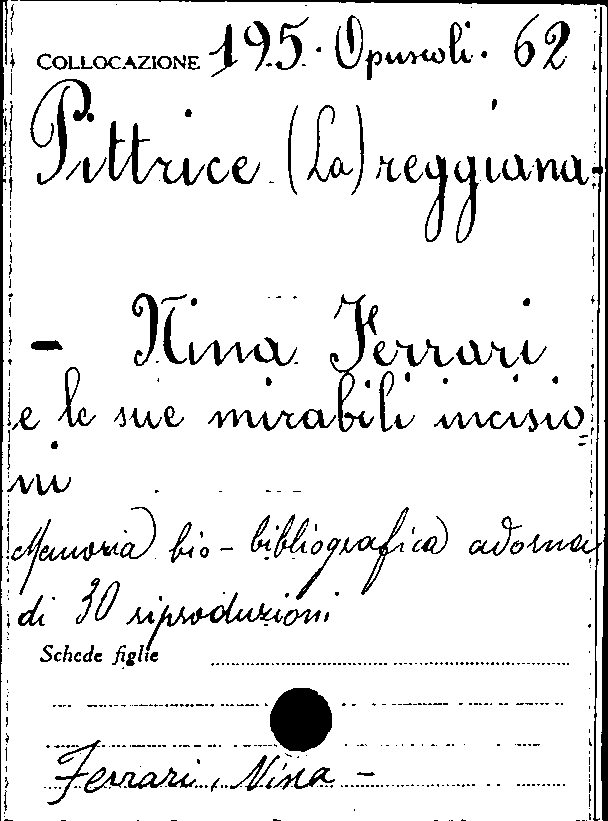 COLLOCAZIONE 195. Opuscoli. 62
Pittrice (La) reggiana-
- Nina Ferrari
e le sue mirabili incisio=
ni
Memoria bio-bibliografica adorna
di 30 riproduzioni
Schede figlie
Ferrari, Nina -